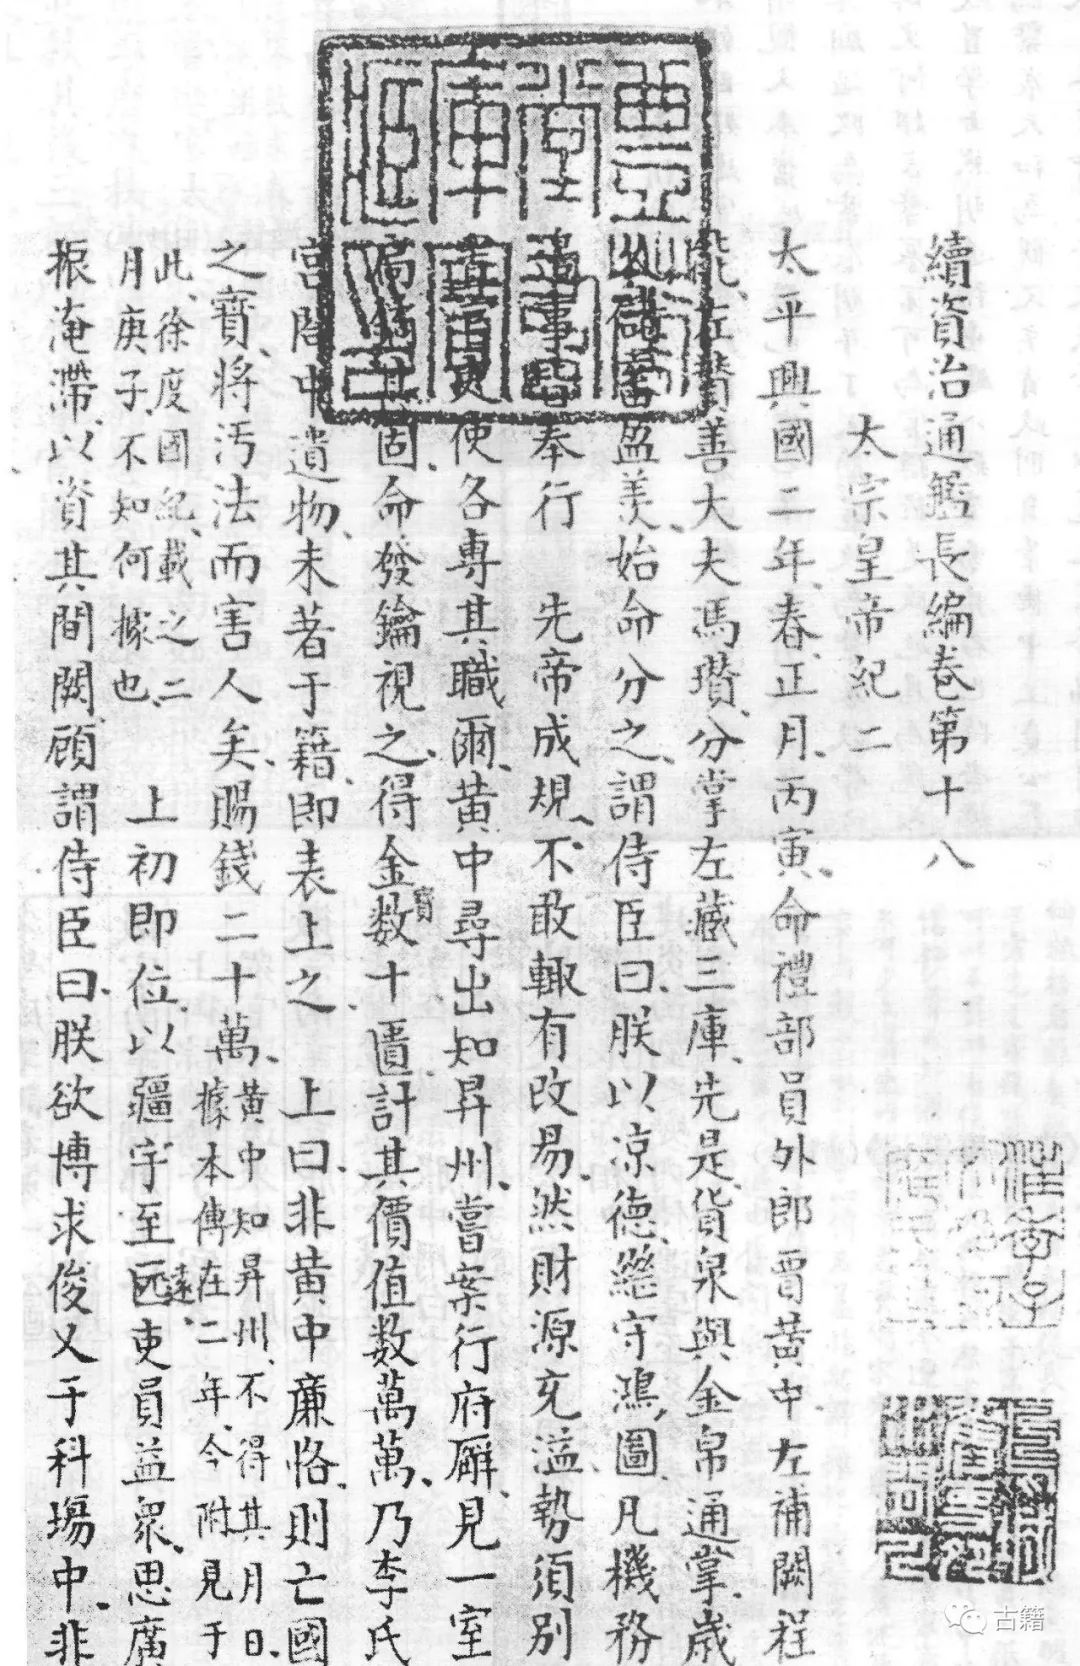 續資治通鑑長編卷第十八
太宗皇帝紀二
太平興國二年春正月丙寅命禮部員外郎賈黃中左補闕程
能左贊善大夫馮瓚分掌左藏三庫先是貨泉與金帛通掌歲
儲蓄盈羨始命分之謂侍臣曰朕以涼德繼守鴻圖凡機務
遇事皆奉行 先帝成規不敢輙有改易然財源充溢勢須別
吏使各專其職爾黃中尋出知昇州嘗案行府廨見一室
扃鐍甚固命發鑰視之得金寶数十匱計其價值数萬萬乃李氏
宮閤中遺物未著于籍即表上之 上曰非黃中廉恪則亡國
之寶將污法而害人矣賜錢二十萬黃中知昇州不得其月日
據本傳在二年今附見于
此徐度國紀載之二
月庚子不知何據也 上初即位以疆宇至遠吏員益衆思廣
振淹滯以資其間闕顧謂侍臣曰朕欲博求俊乂于科場中非
古籍